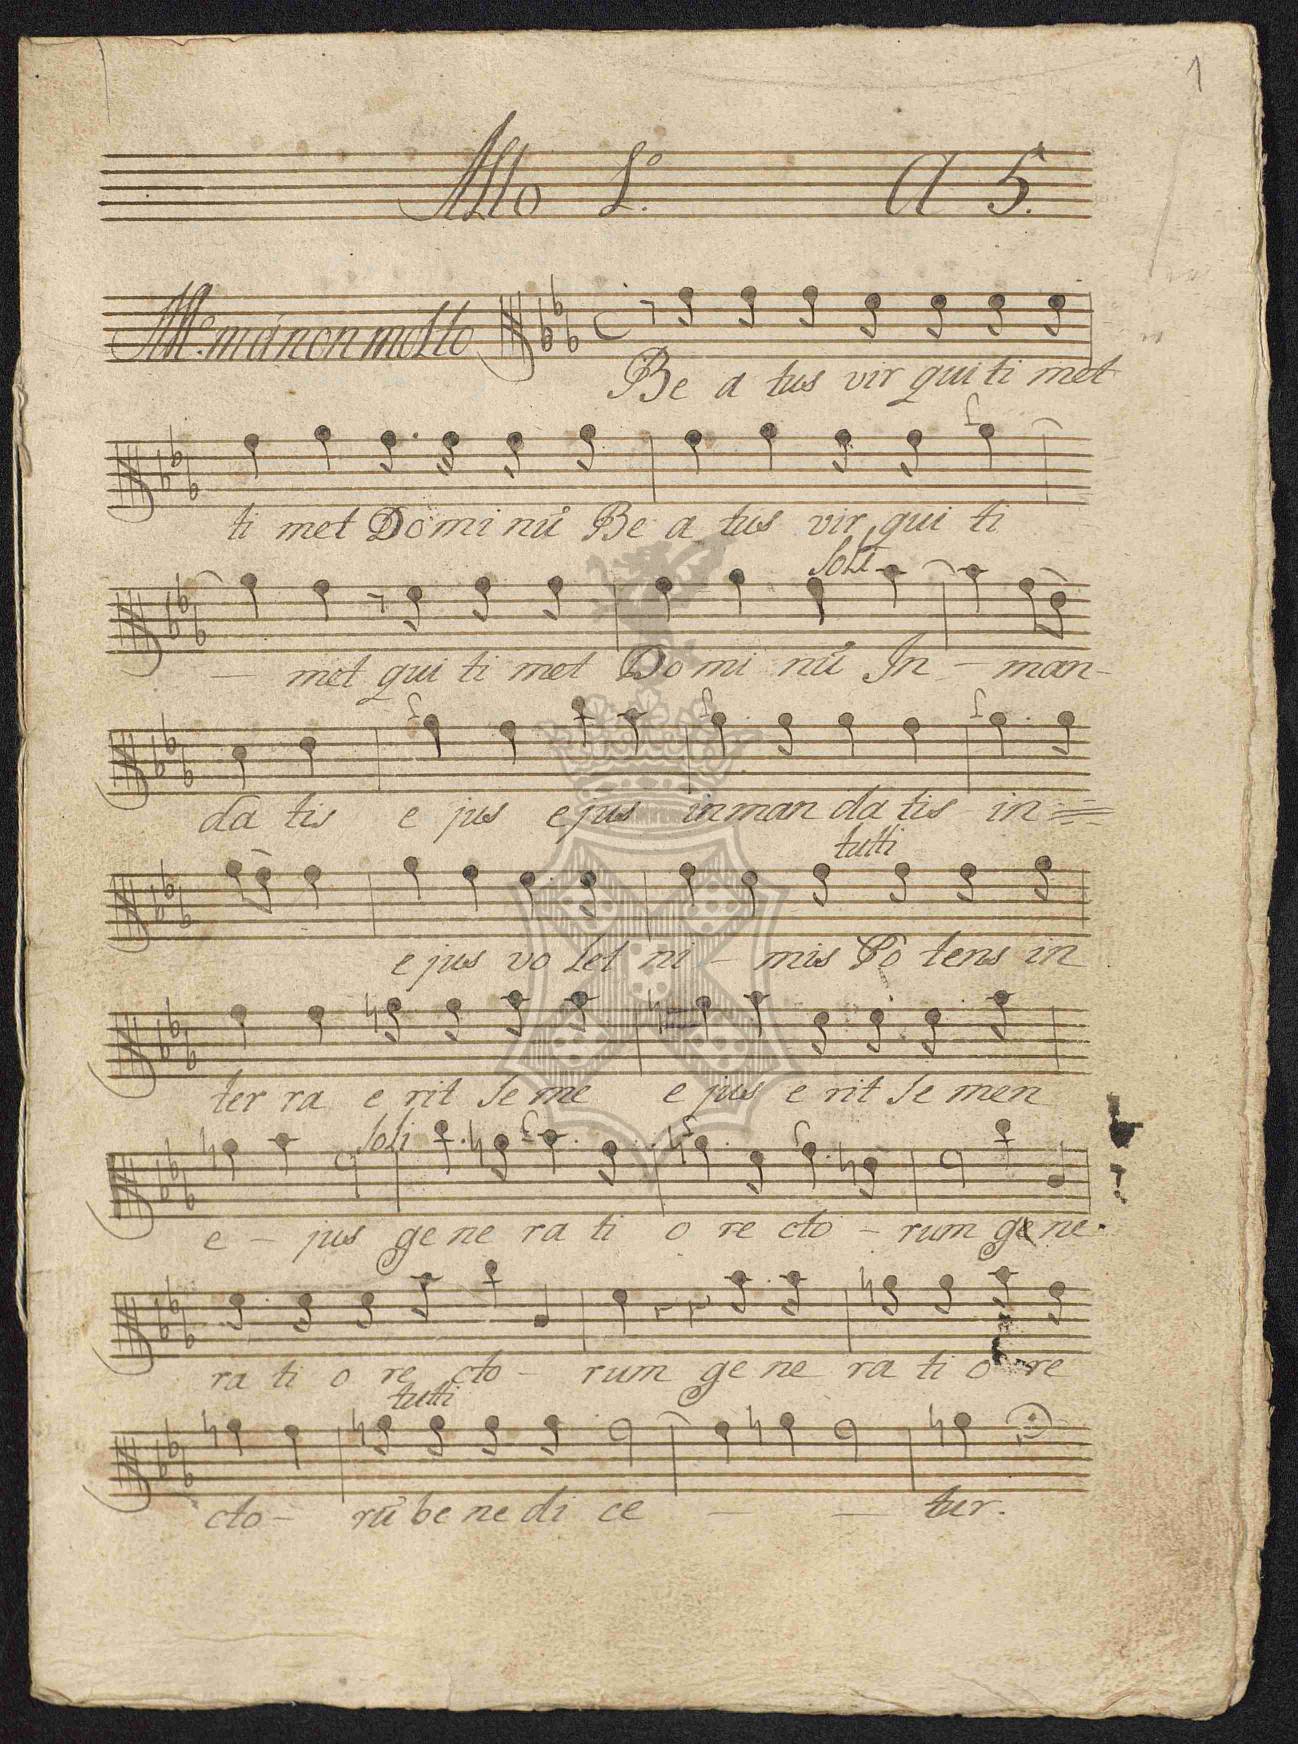 1
Alto 1.º A 5.
All.º ma non molto
Be a tus vir qui ti met
ti met Do mi nū Be a tus vir qui ti
Soli
— met qui ti met Do mi nū In — man-
da tis e jus e jus in man da tis in =
tutti
e jus vo let ni — mis Po tens in
ter ra e rit se me e jus e rit se men
Soli
e — jus ge ne ra ti o re cto — rum ge ne
ra ti o re cto — rum ge ne ra ti o re
tutti
cto — rū be ne di ce — — tur.